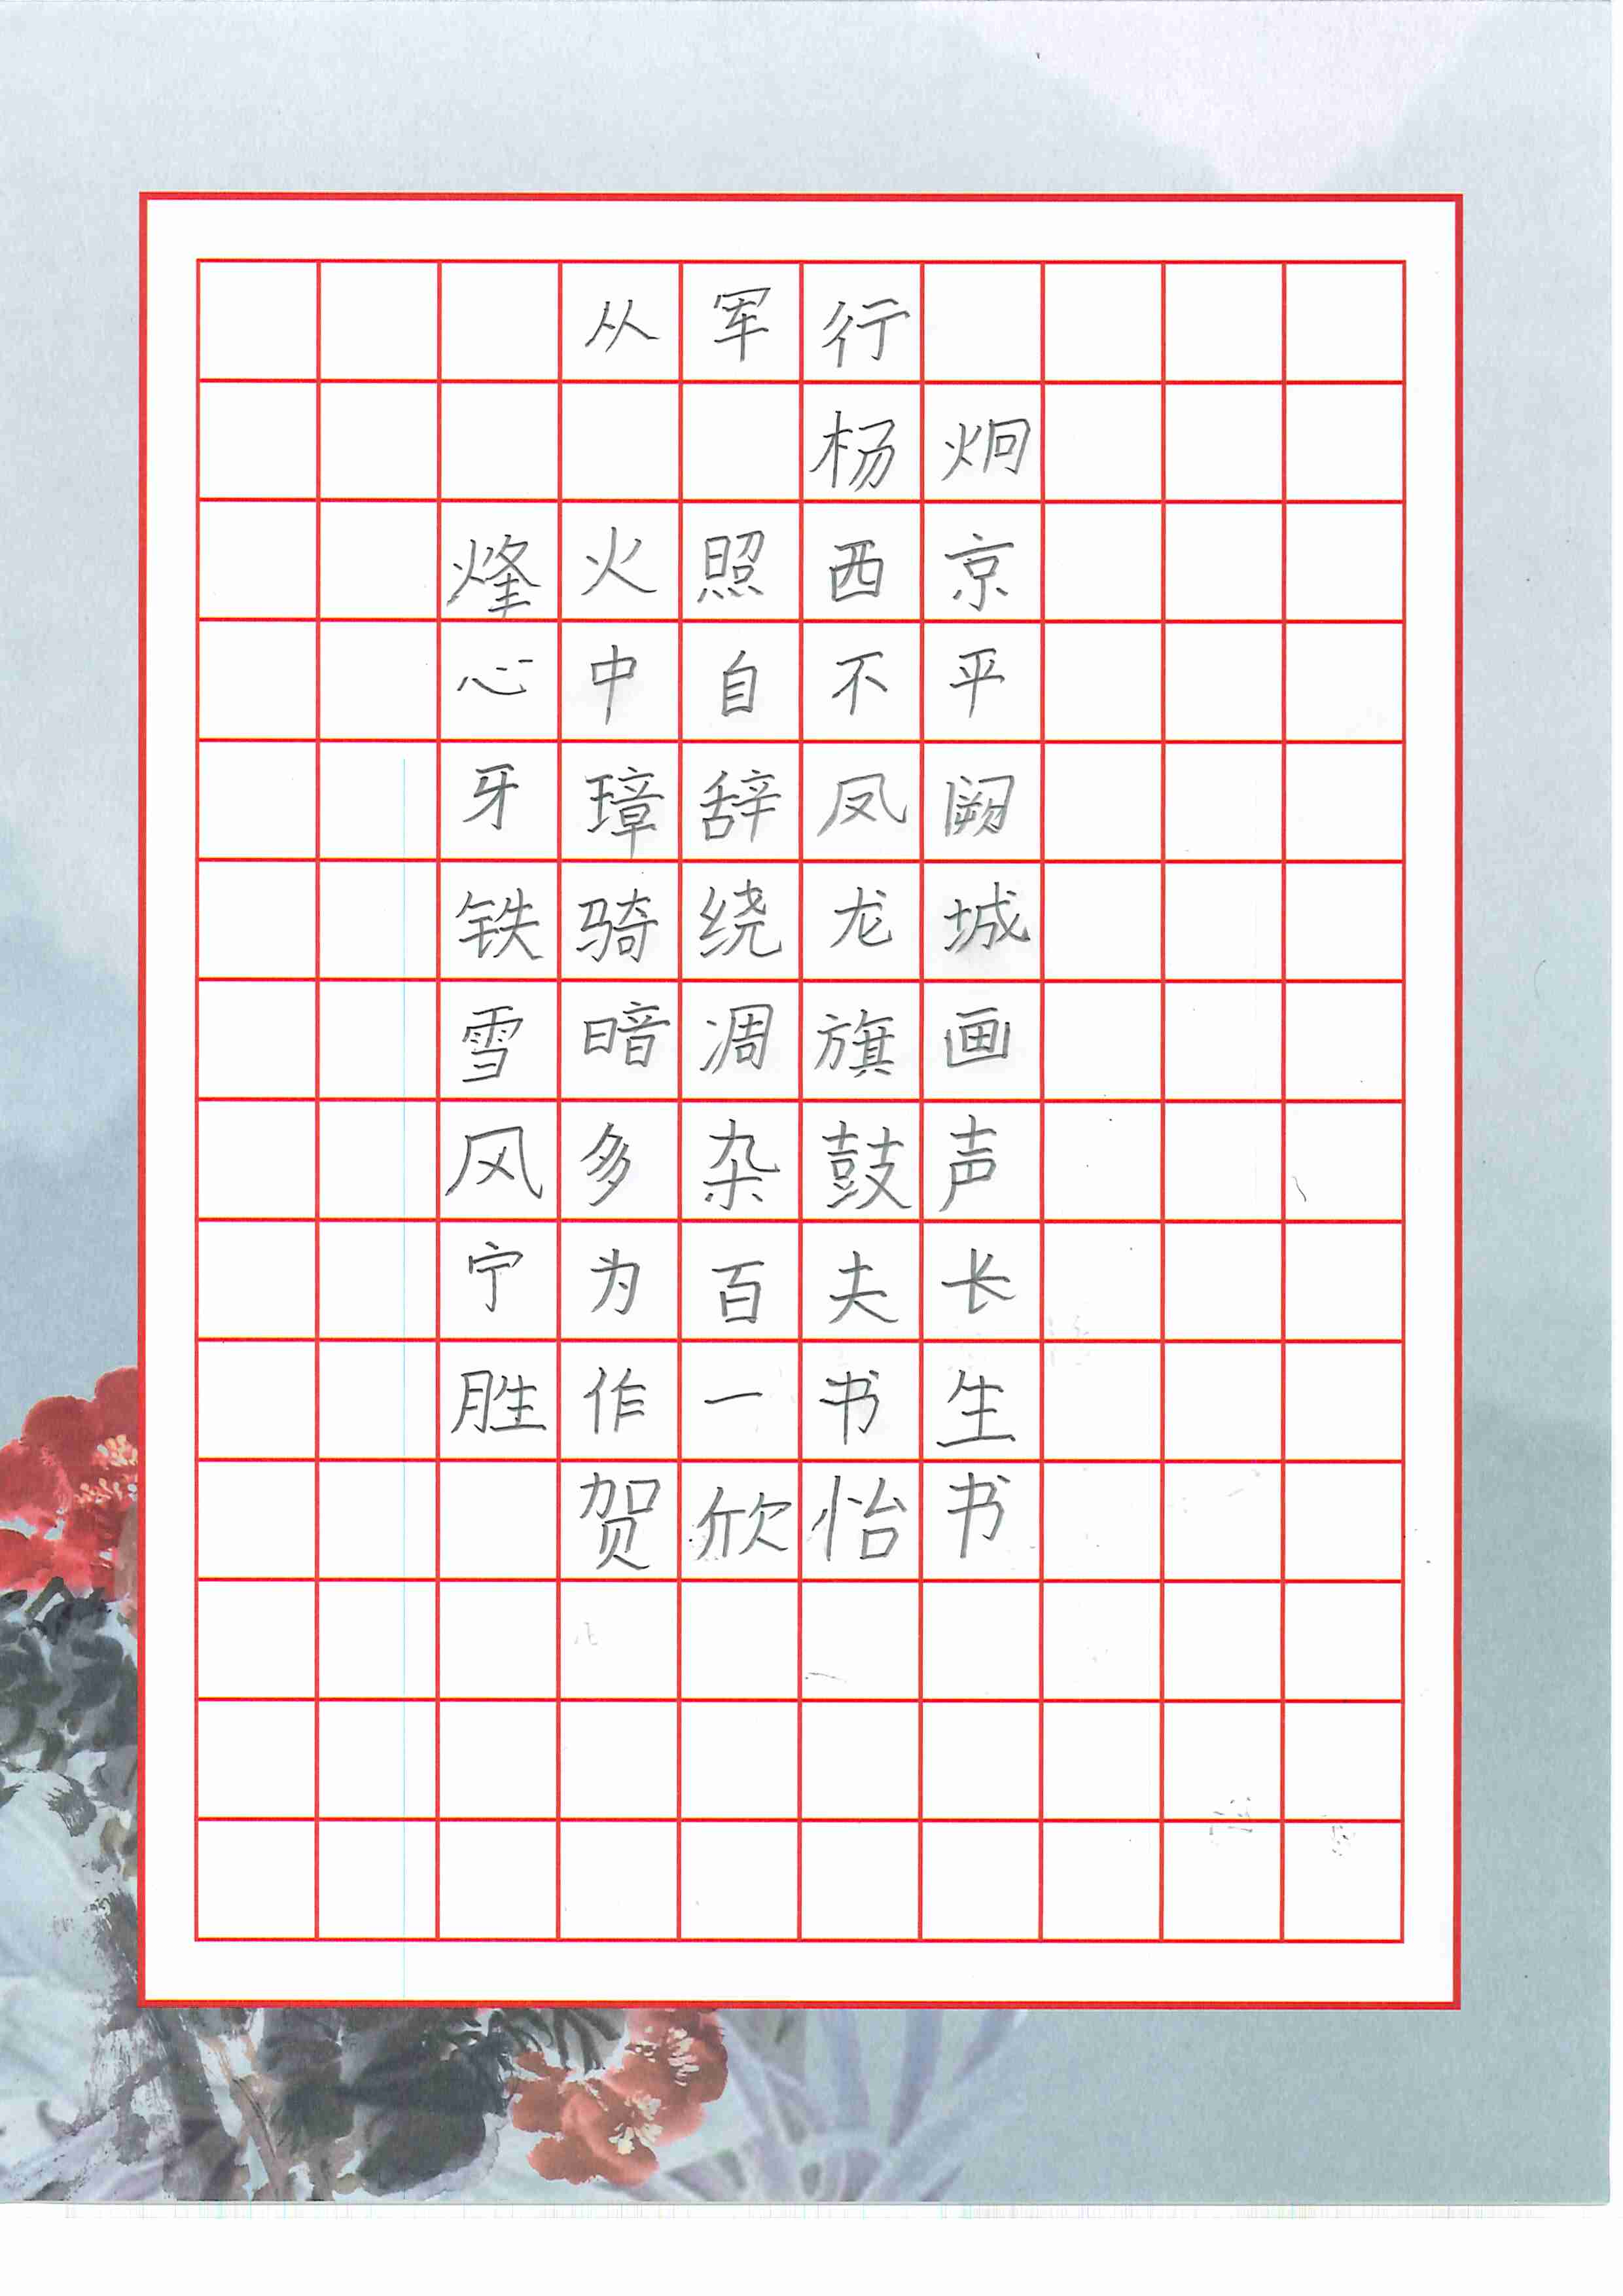 从军行
杨炯
烽火照西京
心中自不平
牙璋辞凤阙
铁骑绕龙城
雪暗凋旗画
风多杂鼓声
宁为百夫长
胜作一书生
贺欣怡书